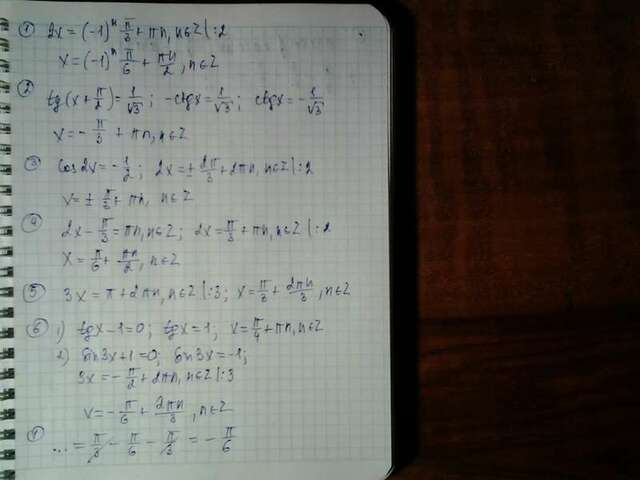 ① 2x = (-1)ⁿ π/3 + πn, n∈Z |:2
x = (-1)ⁿ π/6 + πn/2, n∈Z
② tg(x + π/2) = 1/√3; -ctgx = 1/√3; ctgx = -1/√3
x = - π/3 + πn, n∈Z
③ cos2x = - 1/2; 2x = ± 2π/3 + 2πn, n∈Z |:2
x = ± π/3 + πn, n∈Z
④ 2x - π/3 = πn, n∈Z; 2x = π/3 + πn, n∈Z |:2
x = π/6 + πn/2, n∈Z
⑤ 3x = π + 2πn, n∈Z |:3; x = π/3 + 2πn/3, n∈Z
⑥ 1) tgx - 1 = 0; tgx = 1; x = π/4 + πn, n∈Z
2) sin3x + 1 = 0; sin3x = -1;
3x = - π/2 + 2πn, n∈Z |:3
x = - π/6 + 2πn/3, n∈Z
① ... = π/3 - π/6 - π/3 = - π/6